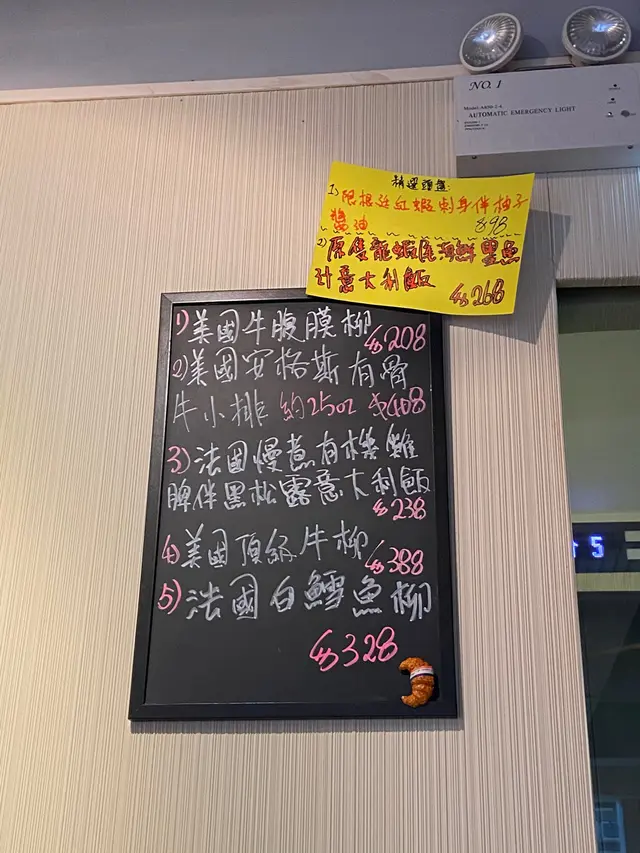 NO. 1
AUTOMATIC EMERGENCY LIGHT
精選頭盤:
1) 阿根廷紅蝦刺身伴柚子
醬油 $98
2) 原隻龍蝦尾海鮮墨魚
汁意大利飯 $268
1) 美國牛腹膜柳 $208
2) 美國安格斯有骨
牛小排 約25oz $408
3) 法國慢煮有機雞
脾伴黑松露意大利飯
$238
4) 美國頂級牛柳 $388
5) 法國白鱈魚柳
$328
5